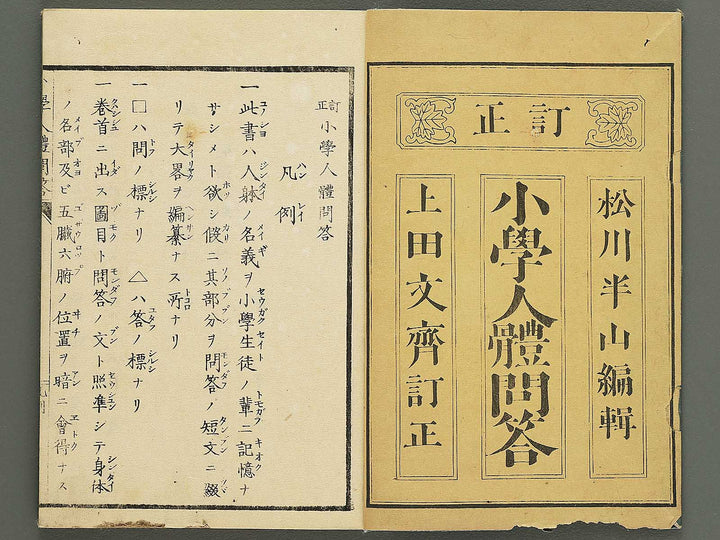 訂正
松川半山編輯
小學人體問答
上田文齊訂正
訂正 小學人體問答
凡例
一此書ハ人躰ノ名義ヲ小學生徒ノ輩ニ記憶ナ
サシメト欲シ假ニ其部分ヲ問答ノ短文ニ綴
リテ大畧ヲ編纂ナス所ナリ
一□ハ問ノ標ナリ △ハ答ノ標ナリ
一卷首ニ出ス圖目ト問答ノ文ト照準シテ身体
ノ名部及ビ五臓六腑ノ位置ヲ暗ニ會得ナス
學人體問答